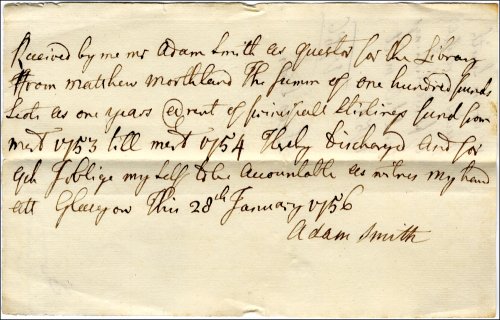 Received by me mr Adam Smith as questor for the Library
from matthew morthland The summ of one hundred punds
Scots as one years @rent of principall Stirlings fund from
mert 1753 till mert 1754 Hereby Discharged And for
qch I oblige my self to be Accountable as witnes my hand
att Glasgow This 28th January 1756
Adam Smith